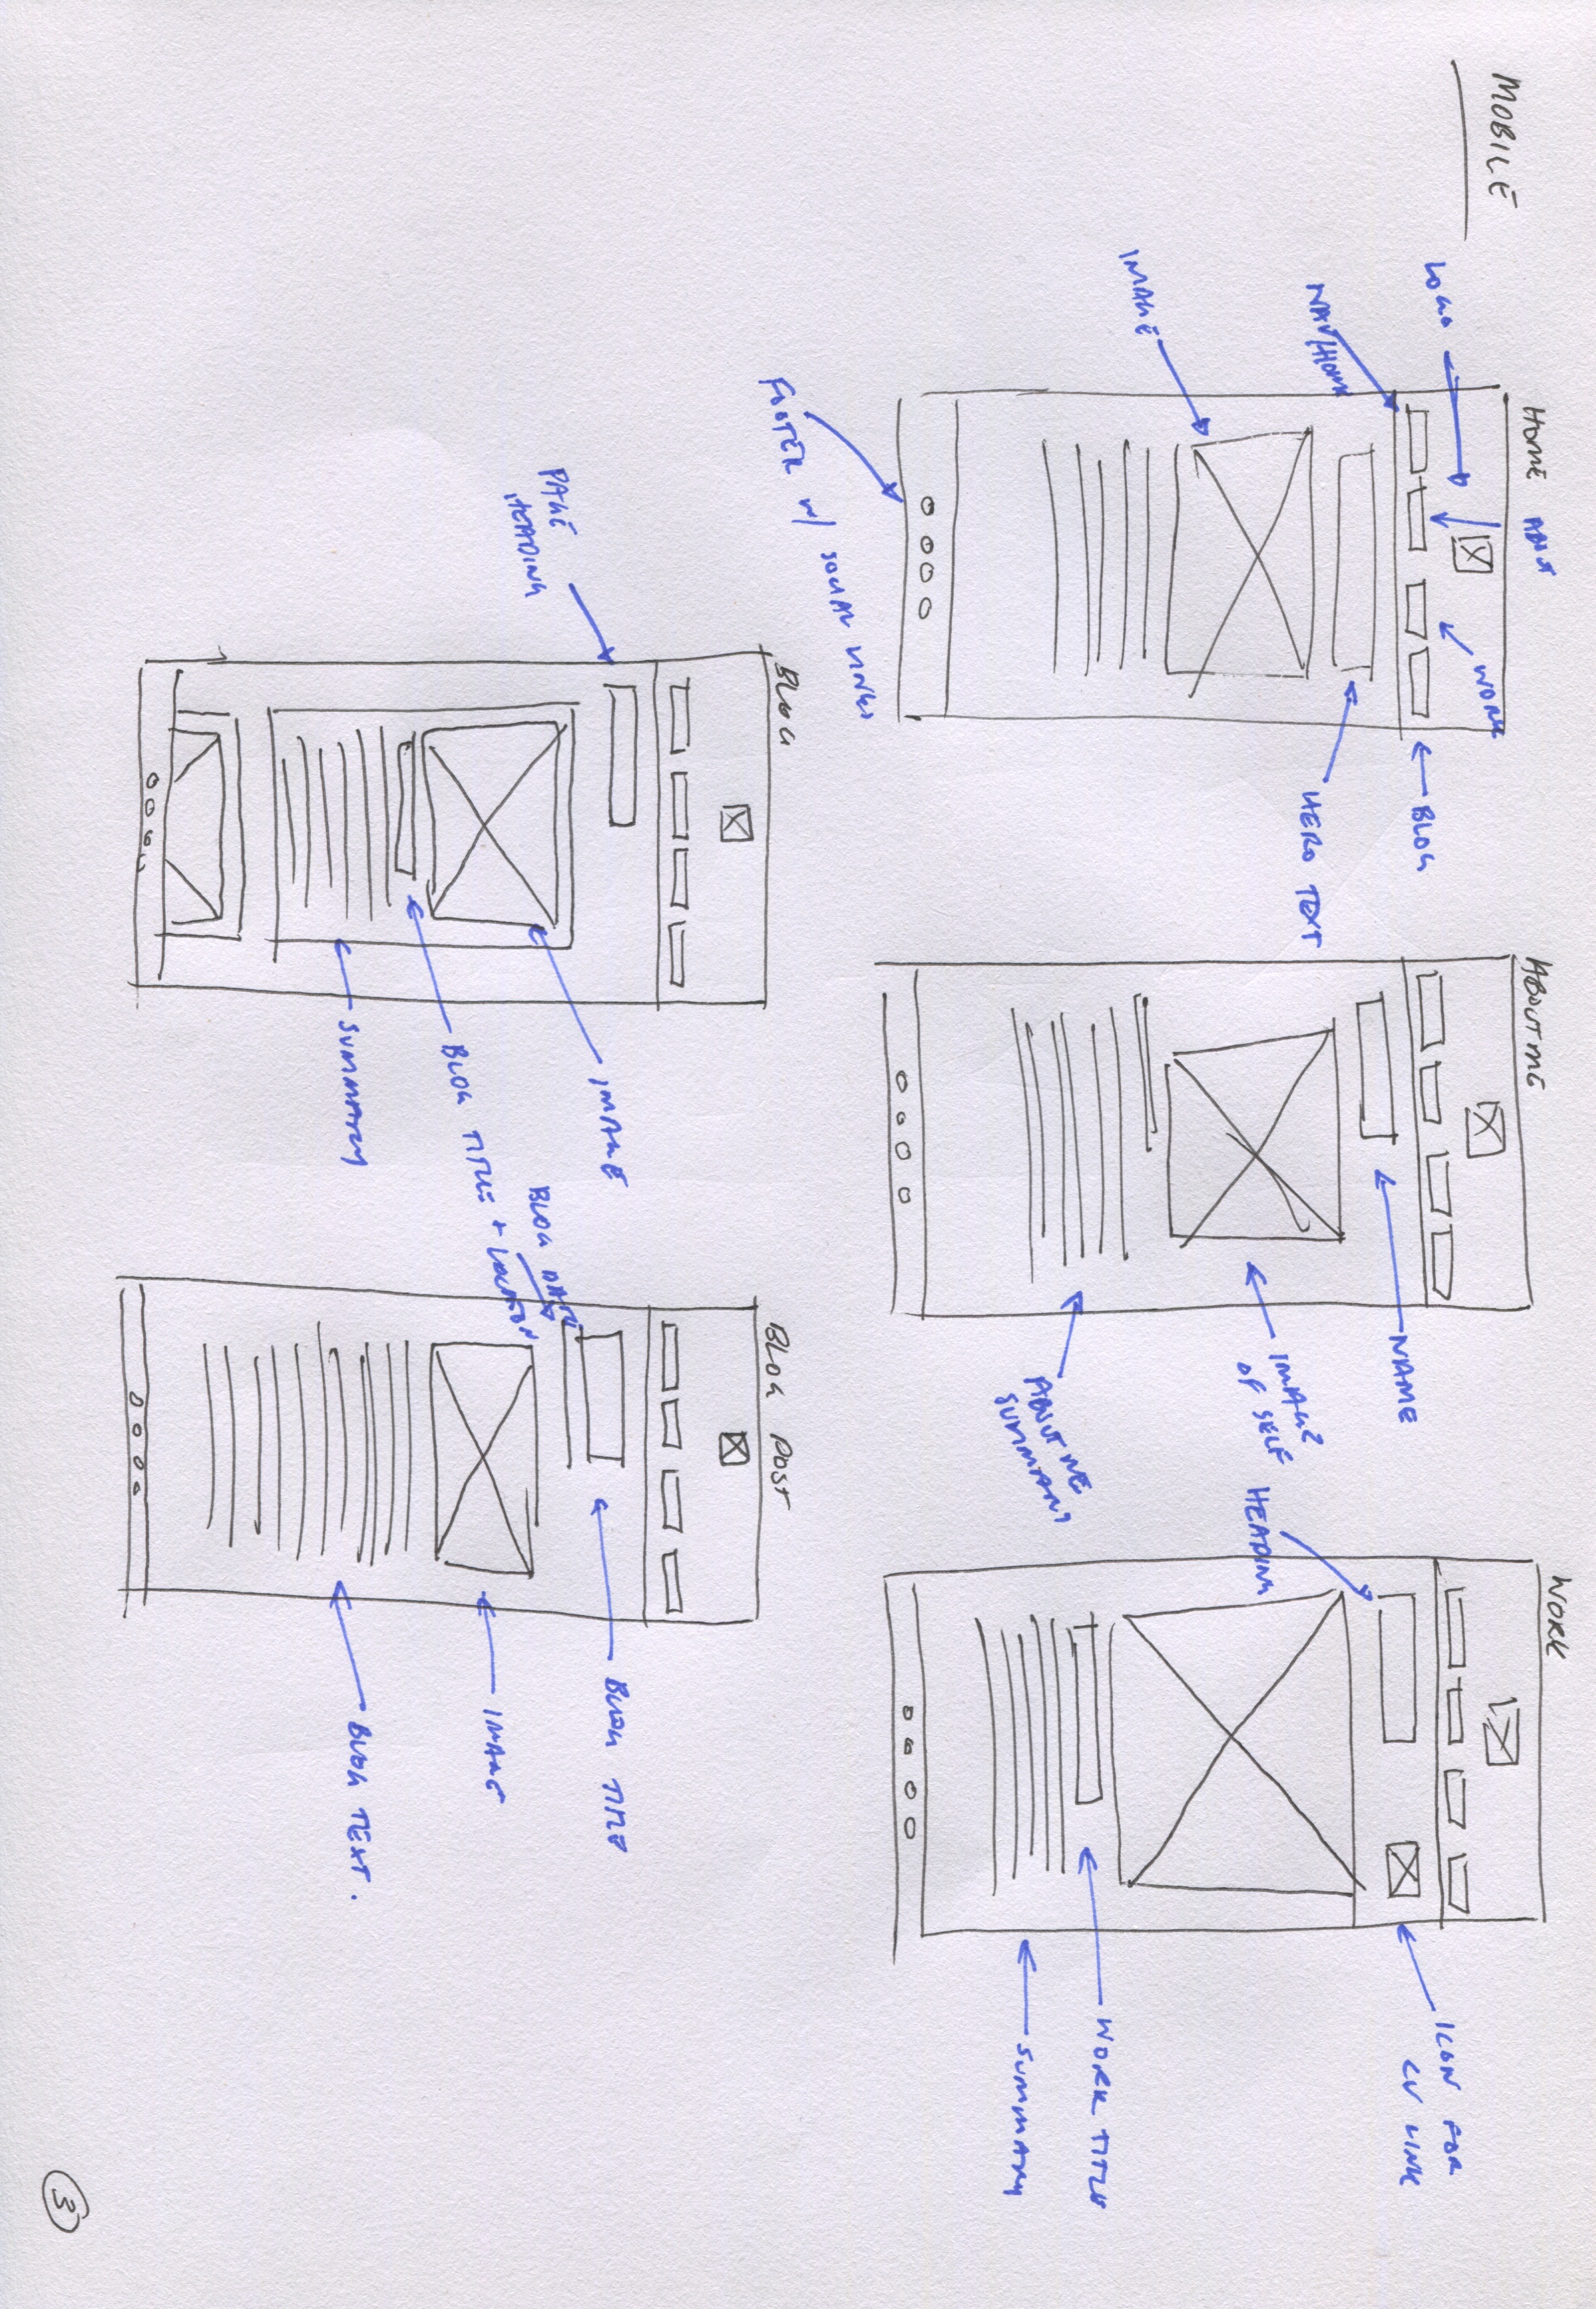 MOBILE
HOME
ABOUT
WORK
LOGO
BLOG
NAV/HOME
HERO TEXT
IMAGE
FOOTER W/ SOCIAL LINKS
ABOUT ME
NAME
IMAGE
OF SELF
ABOUT ME
SUMMARY
WORK
ICON FOR
CV LINK
HEADING
WORK TITLE
SUMMARY
BLOG
PAGE
HEADING
IMAGE
BLOG TITLE
SUMMARY
BLOG POST
BLOG TITLE
BLOG DATE
+ LOCATION
IMAGE
BLOG TEXT.
3